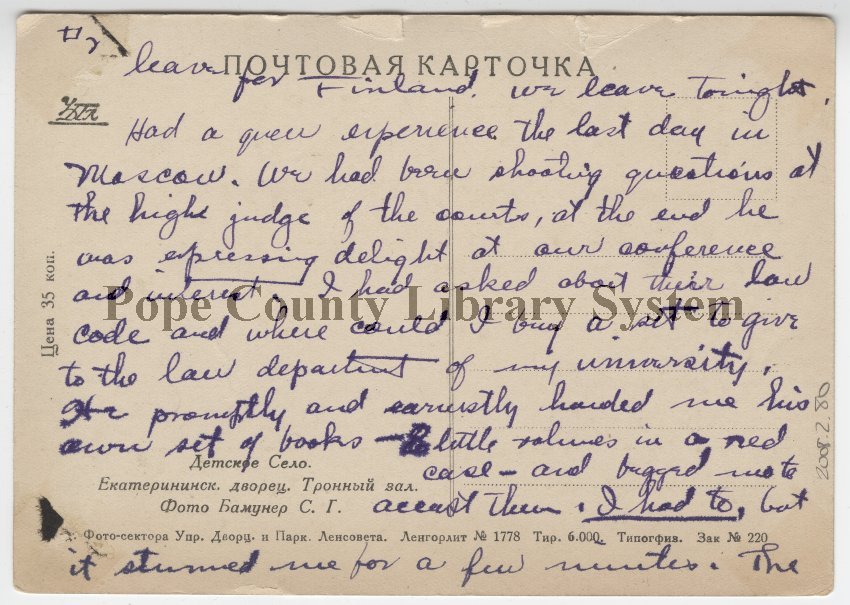 leave for Finland. We leave tonight.
ПОЧТОВАЯ КАРТОЧКА
Had a queer experience the last day in
Moscow. We had been shooting questions at
the high judge of the courts, at the end he
was expressing delight at our conference
and interest. I had asked about their law
code and where could I buy a set to give
to the law department of my university.
He promptly and earnestly handed me his
own set of books — 8 little volumes in a red
case — and begged me to
accept them. I had to, but
it stunned me for a few minutes. The
Цена 35 коп.
Детское Село.
Екатерининск. дворец. Тронный зал.
Фото Бамунер С. Г.
Фото-сектора Упр. Дворц. и Парк. Ленсовета. Ленгорлит № 1778 Тир. 6.000. Типогфив. Зак № 220
Pope County Library System
2008.2.80